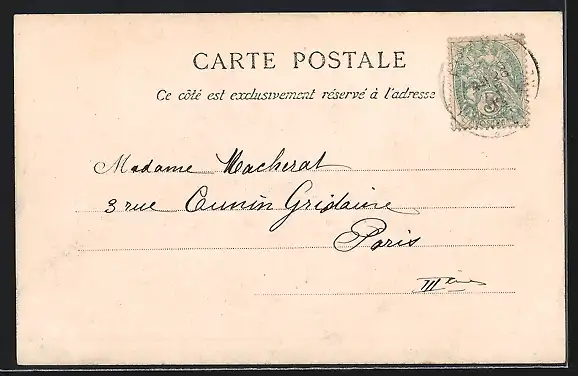 CARTE POSTALE
Ce côté est exclusivement réservé à l'adresse
5
Madame Macherat
3 rue Cunin Gridaine
Paris
IIIème